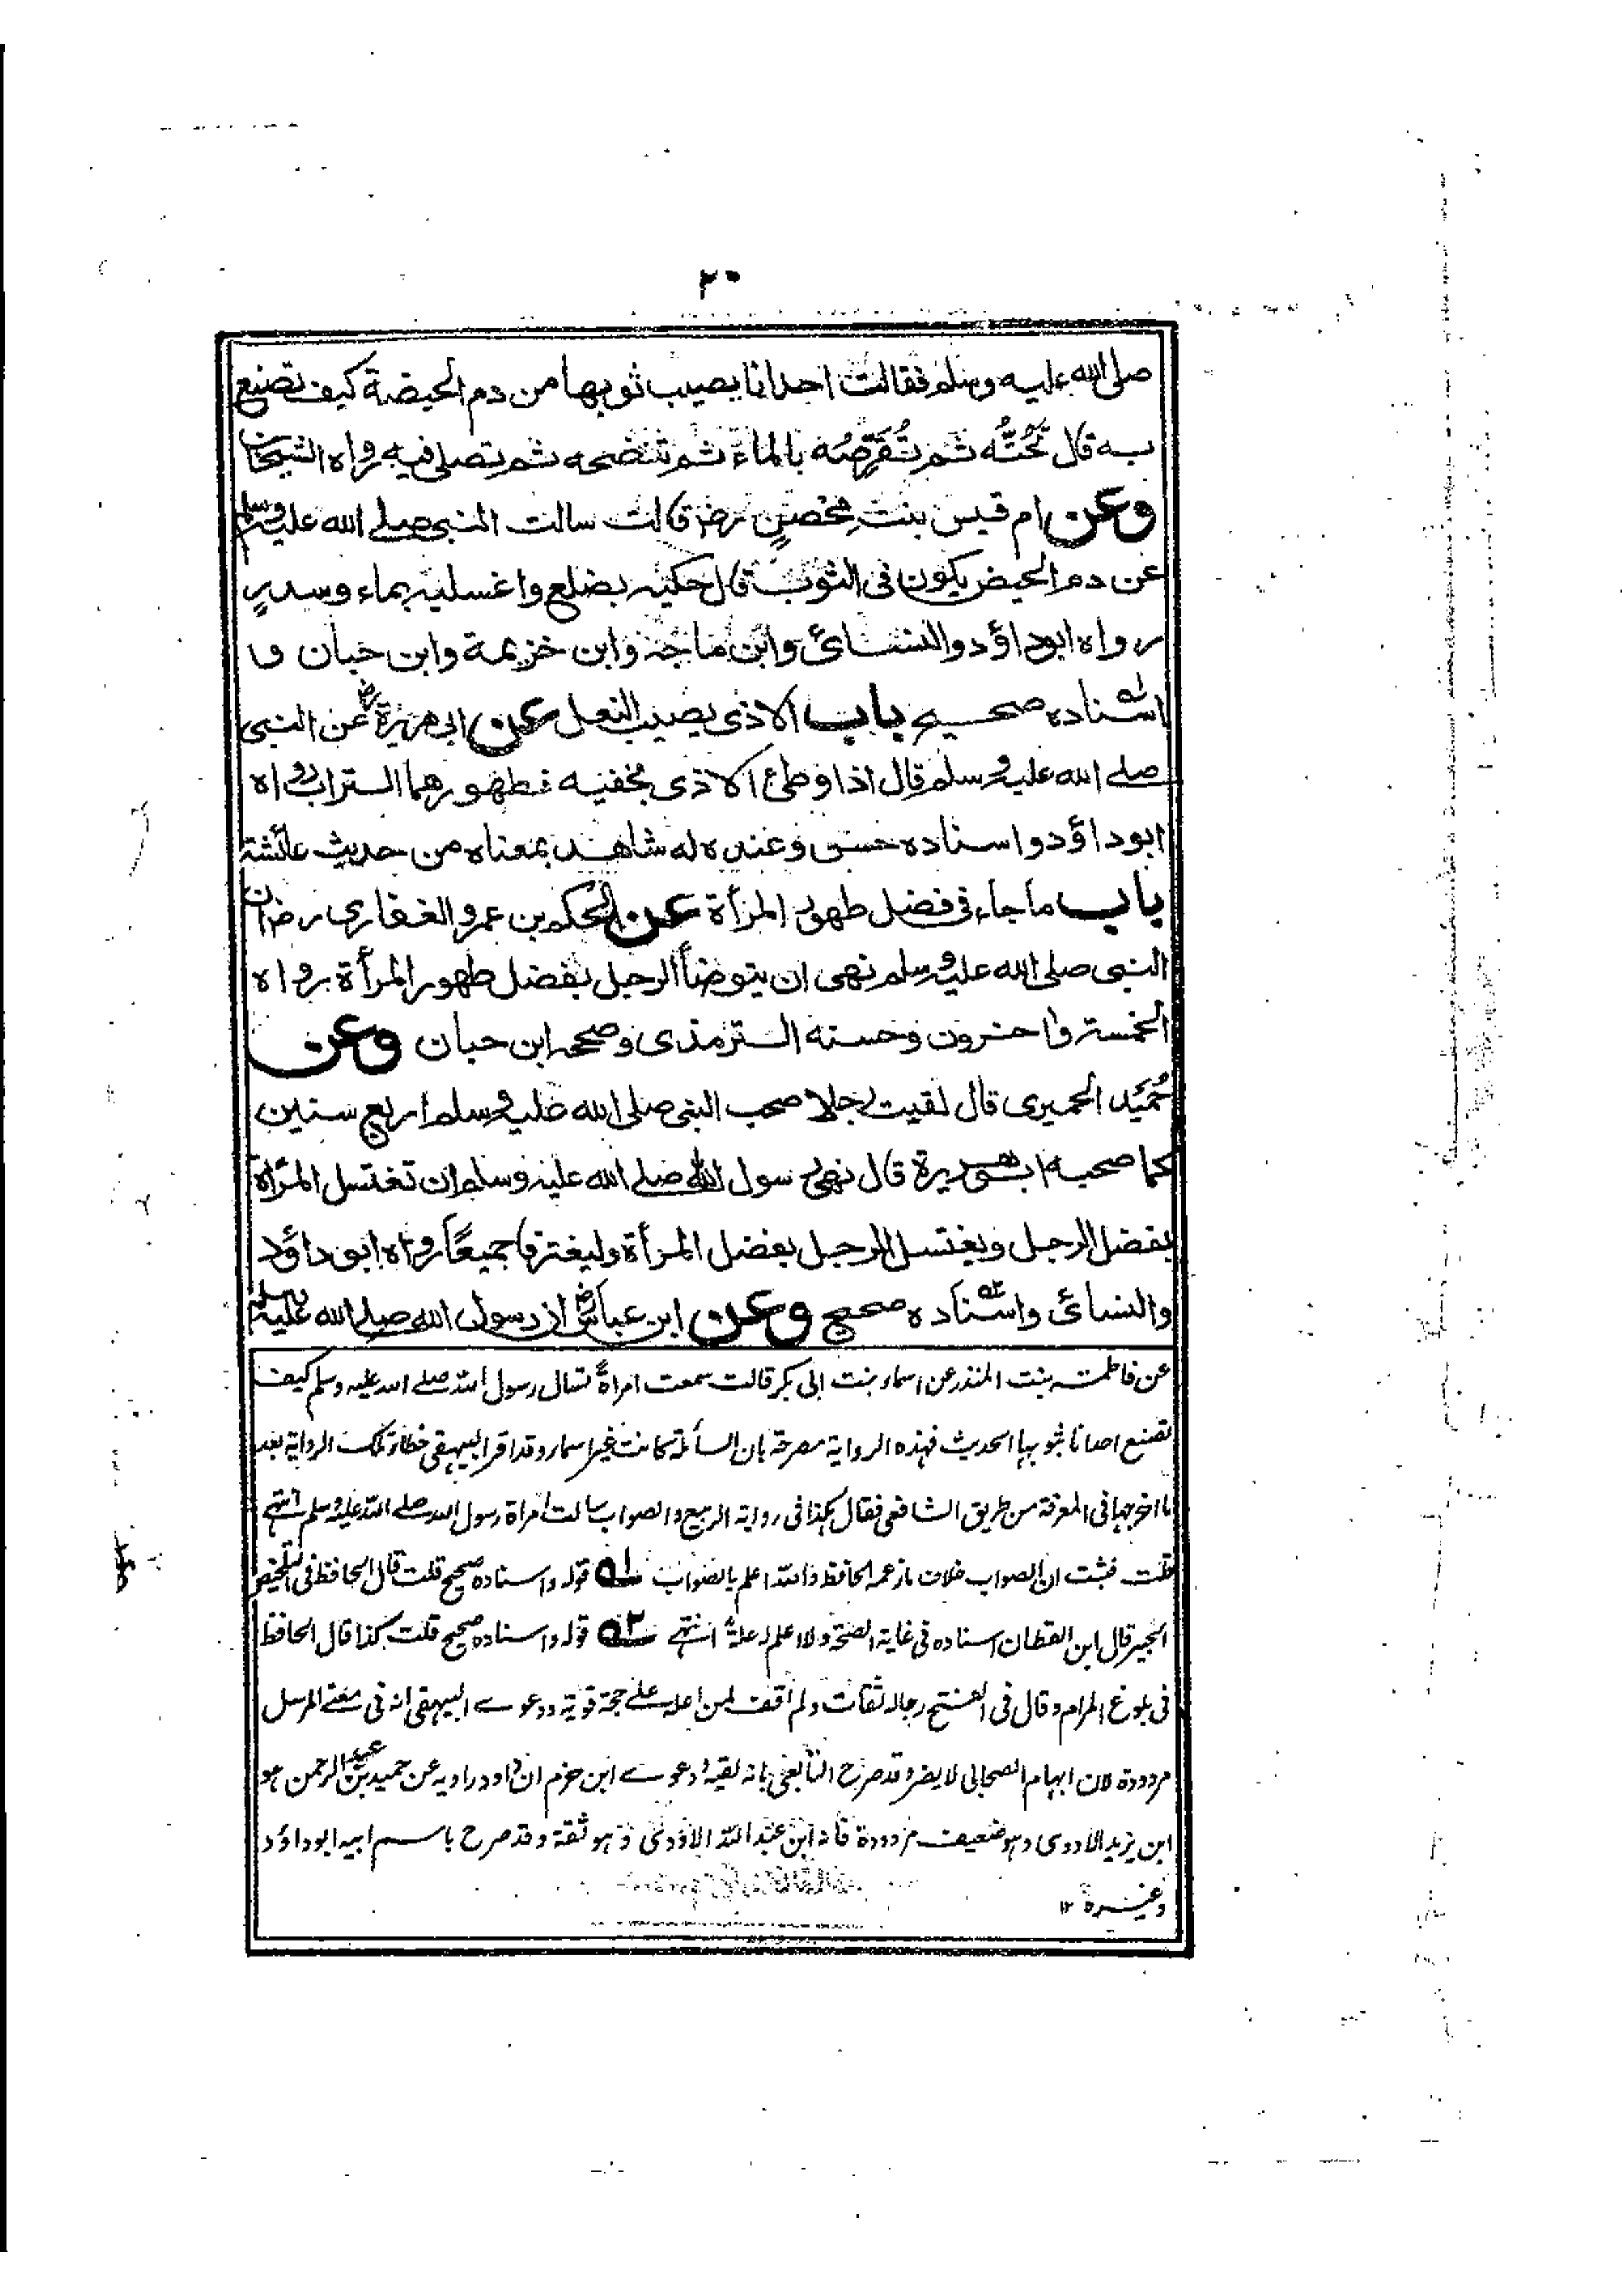 ٢٠
صلى الله عليه وسلم فقالت احدانا يصيب ثوبها من دم الحيضة كيف تصنع
به قال تَحُتُّه ثم تُقَرِّصُه بالماء ثم تنضحه ثم تصلى فيه رواه الشيخان
وعن ام قيس بنت محصنٍ رضـ قالت سالت النبى صلے الله عليه وسلم
عن دم الحيض يكون فى الثوب قال حكيه بضلع واغسليه بماء وسدرٍ
رواه ابوداؤد والنسائى وابن ماجة وابن خزيمة وابن حبان و
اسناده صحيح باب الاذى يصيب النعل عن ابى هريرة رضـ عن النبى
صلے الله عليه وسلم قال اذا وطئ الاذى بخفيه فطهورهما التراب رواه
ابوداؤد واسناده حسن وعنده له شاهد بمعناه من حديث عائشة
باب ما جاء فى فضل طهور المرأة عن الحكم بن عمرو الغفارى رضـ ان
النبى صلى الله عليه وسلم نهى ان يتوضأ الرجل بفضل طهور المرأة رواه
الخمسة واخرون وحسنه الترمذى وصححه ابن حبان وعن
حُمَيْد الحميرى قال لقيت رجلا صحب النبى صلى الله عليه وسلم اربع سنين
كما صحبه ابو هريرة قال نهى رسول الله صلے الله عليه وسلم ان تغتسل المرأة
بفضل الرجل ويغتسل الرجل بفضل المرأة وليغترفا جميعًا رواه ابوداؤد
والنسائى واسناده صحيح وعن ابن عباس رضـ ان رسول الله صلے الله عليه وسلم
عن فاطمة بنت المنذر عن اسماء بنت ابى بكر قالت سمعت امراةً تسال رسول الله صلے الله عليه وسلم كيف
تصنع احدانا بثوبها الحديث فهذه الرواية مصرحة بان السائلة كانت غير اسماء وقد اقر البيهقى خطاء تلك الرواية بعد
ما اخرجها فى المعرفة من طريق الشافعى فقال هكذا فى رواية الربيع والصواب سالت امراة رسول الله صلے الله عليه وسلم انتهے
قلت فثبت ان الصواب خلاف ما زعمه الحافظ والله اعلم بالصواب ١ه قوله واسناده صحيح قلت قال الحافظ فى التلخيص
الحبير قال ابن القطان اسناده فى غاية الصحة ولا اعلم له علةً انتهے ٢ه قوله واسناده صحيح قلت هكذا قال الحافظ
فى بلوغ المرام وقال فى الفتح رجاله ثقات ولم اقف لمن اعله علے حجة قوية ودعوے البيهقى انه فى معنے المرسل
مردودة لان ابهام الصحابى لا يضر وقد صرح التابعى بانه لقيه ودعوے ابن حزم ان داود راويه عن حميد بن عبد الرحمن هو
ابن يزيد الاودى وهو ضعيف مردودة فانه ابن عبد الله الاودى وهو ثقة وقد صرح باسم ابيه ابوداؤد
وغيره ١٢